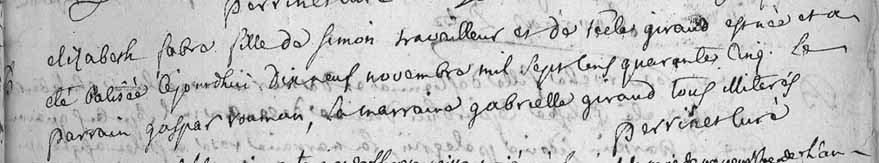 perrinet curé
elizabeth fabre fille de simon travailleur et de giraud est née et a
eté batisée cejourdhui Dixneuf novembre mil sept cens quarante Cinq. Le
parrain gaspar romain, La marraine gabrielle giraud tous illiterés
perrinet curé